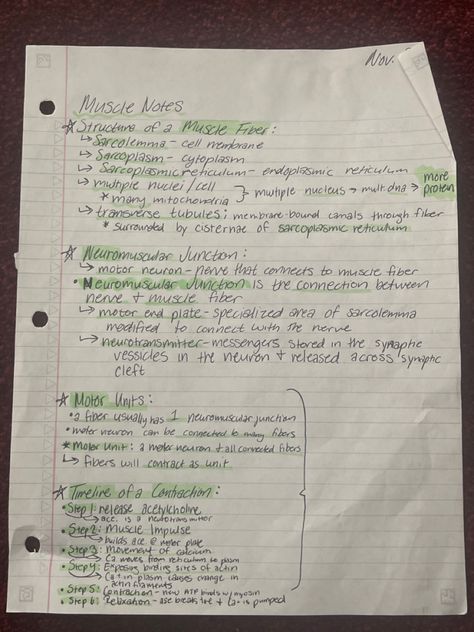 Nov.
Muscle Notes
☆ Structure of a Muscle Fiber:
↳ Sarcolemma - cell membrane
↳ Sarcoplasm - cytoplasm
↳ Sarcoplasmic reticulum - endoplasmic reticulum
↳ multiple nuclei/cell
* many mitochondria } multiple nucleus → mult. dna → more protein
↳ transverse tubules: membrane-bound canals through fiber
* surrounded by cisternae of sarcoplasmic reticulum
☆ Neuromuscular Junction:
↳ motor neuron - nerve that connects to muscle fiber
• Neuromuscular Junction is the connection between
nerve + muscle fiber
↳ motor end plate - specialized area of sarcolemma
modified to connect with the nerve
↳ neurotransmitter - messengers stored in the synaptic
vessicles in the neuron + released across synaptic
cleft
☆ Motor Units:
• a fiber usually has 1 neuromuscular junction
• motor neuron can be connected to many fibers
* Motor Unit: a motor neuron + all connected fibers
↳ fibers will contract as unit
☆ Timeline of a Contraction:
• Step 1: release acetylcholine
→ ace. is a neurotransmitter
• Step 2: Muscle Impulse
→ builds ace @ motor plate
• Step 3: Movement of calcium
→ Ca moves from reticulum to plasm
• Step 4: Exposing binding sites of actin
→ Ca+ in plasm causes change in
actin filaments
• Step 5: Contraction - new ATP binds w/ myosin
• Step 6: Relaxation - ase breaks + Ca+ is pumped